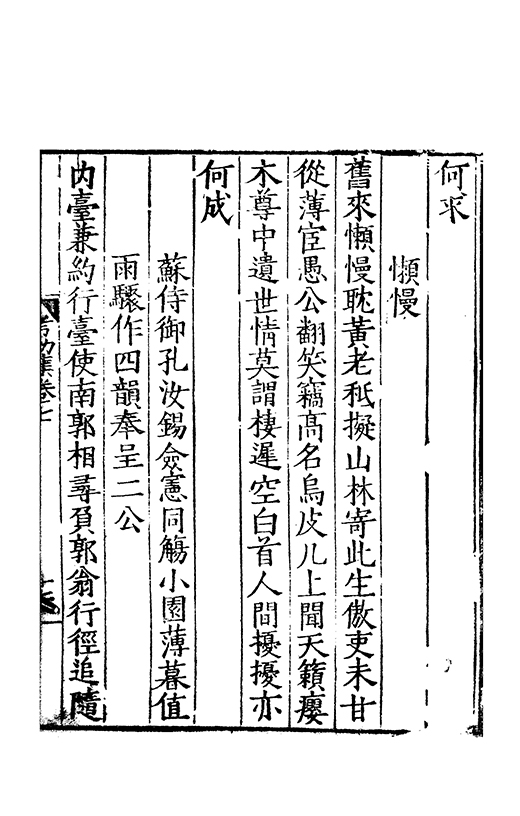 何求
懶慢
舊來懶慢耽黃老秪擬山林寄此生傲吏未甘
從薄宦愚公翻笑竊高名烏皮几上聞天籟癭
木尊中遺世情莫謂棲遲空白首人間擾擾亦
何成
蘇侍御孔汝錫僉憲同觴小園薄暮值
雨驟作四韻奉呈二公
內臺兼約行臺使南郭相尋負郭翁行徑追隨
集卷七